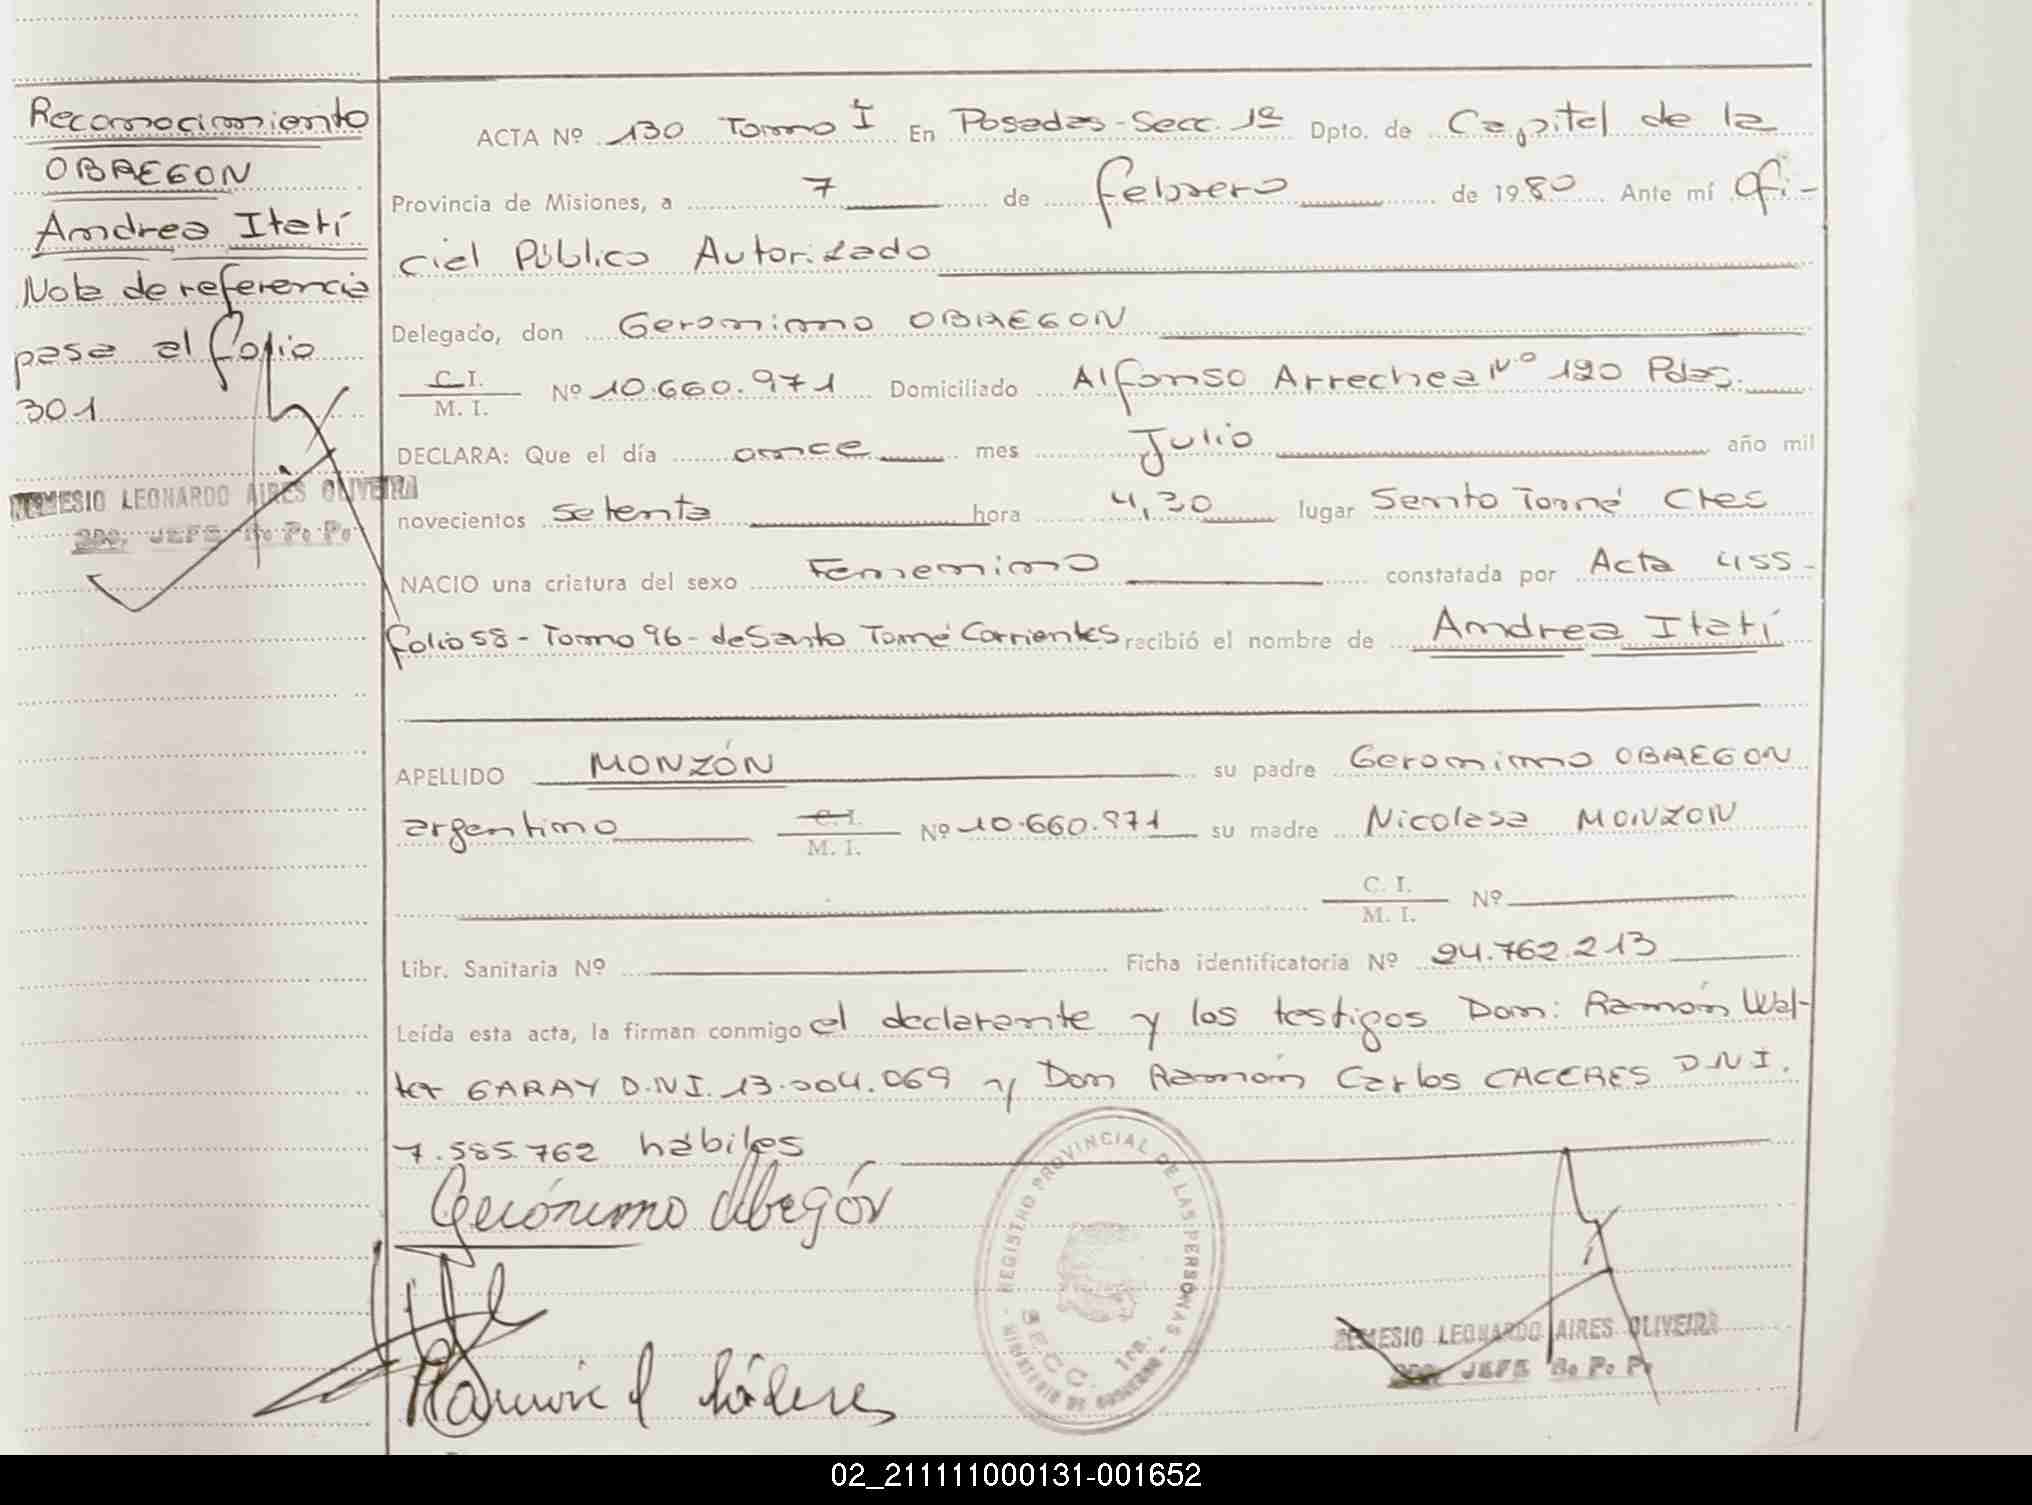 Reconocimiento
OBREGON
Andrea Itatí
Nota de referencia
pasa al folio
301
NEMESIO LEONARDO AIRES OLIVEIRA
2DO. JEFE R. P. P.
ACTA Nº 130 Tomo I En Posadas - Secc. 1ª Dpto. de Capital de la
Provincia de Misiones, a 7 de febrero de 1980 Ante mí Ofi-
cial Público Autorizado
Delegado, don Geronimo OBREGON
C. I. / M. I. Nº 10.660.971 Domiciliado Alfonso Arrechea Nº 120 Pdas.
DECLARA: Que el día once mes Julio año mil
novecientos setenta hora 4,30 lugar Santo Tomé Ctes
NACIO una criatura del sexo Femenino constatada por Acta 455-
folio 58 - Tomo 96 - de Santo Tomé Corrientes recibió el nombre de Andrea Itatí
APELLIDO MONZÓN su padre Geronimo OBREGON
argentino C. I. / M. I. Nº 10.660.971 su madre Nicolasa MONZON
C. I. / M. I. Nº
Libr. Sanitaria Nº Ficha identificatoria Nº 24.762.213
Leída esta acta, la firman conmigo el declarante y los testigos Don: Ramón Wal-
ter GARAY D.N.I. 13.004.069 y Don Ramón Carlos CACERES D.N.I.
7.585.762 hábiles
Gerónimo Obregón
REGISTRO PROVINCIAL DE LAS PERSONAS
SECC. 1RA.
MINISTERIO DE GOBIERNO
Ramón C Cáceres
NEMESIO LEONARDO AIRES OLIVEIRA
2DO. JEFE R. P. P.
02_211111000131-001652